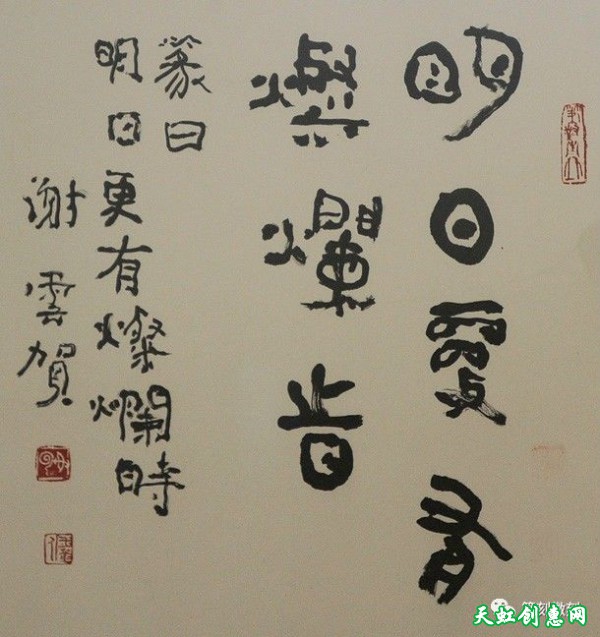 明日更有
燦爛時
篆曰
明日更有燦爛時
謝雲賀
天虹创惠网